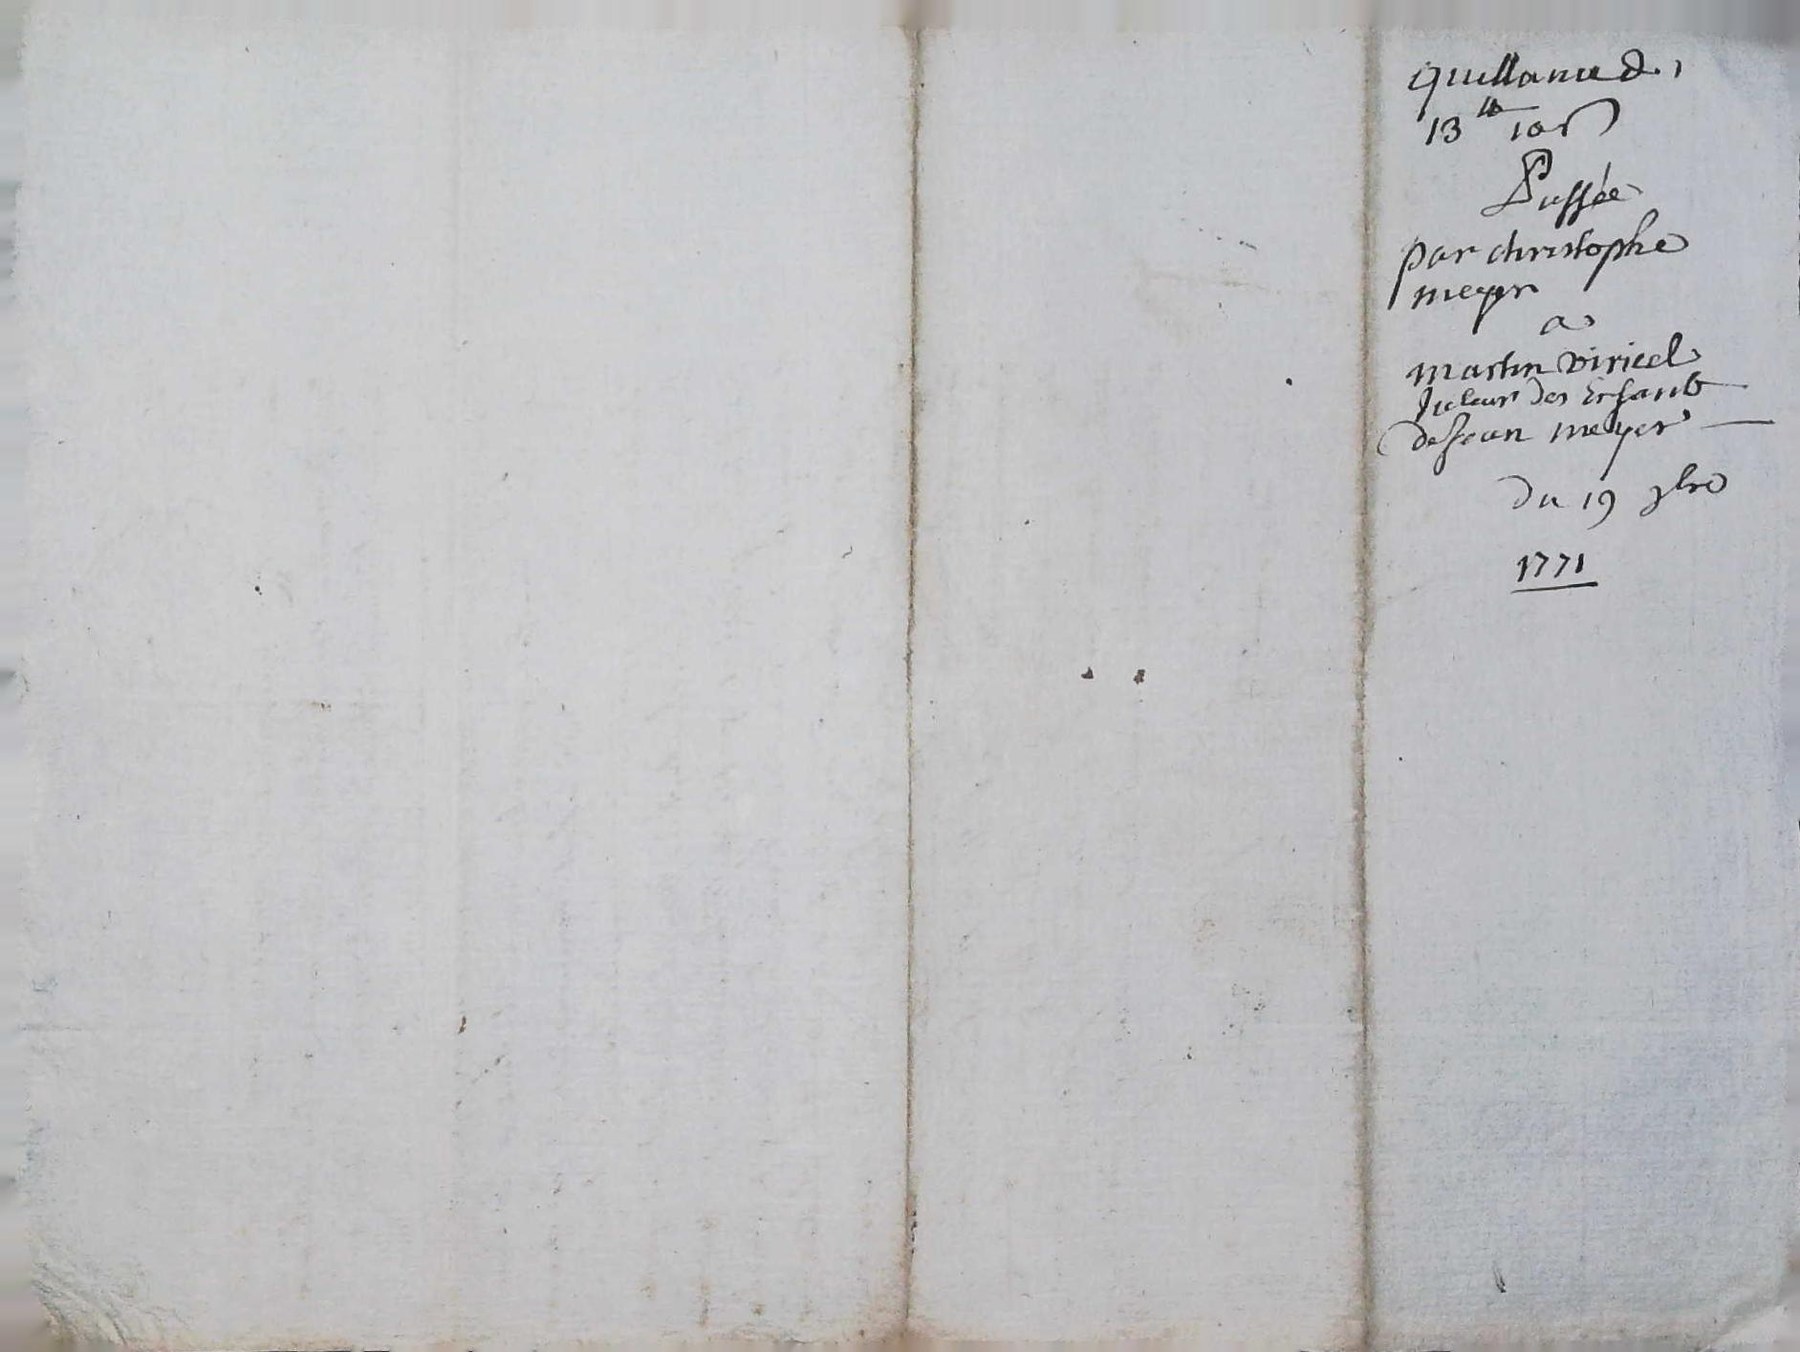 quittance de
13 tt 10 s
Passée
par christophe
meyer
a
martin viricel
tuteur des Enfants
de jean meyer
du 19 9bre
1771